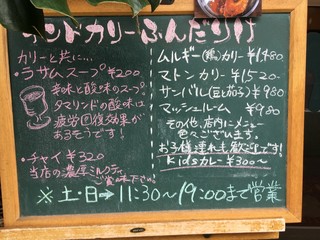 インドカリーふんだりけ
カリーと共に…
・ラサムスープ ¥200
辛味と酸味のスープ
タマリンドの酸味は
疲労回復効果が
あるそうです!
・チャイ ¥320
当店の濃厚ミルクティ
ご賞味下さい!
ムルギー(鶏)カリー ¥1,480
マトンカリー ¥1520-
サンバル(豆と茄子) ¥980
マッシュルーム ¥980
その他、店内にメニュー
色々ございます。
お子様連れも歓迎です!
Kidsカレー ¥300〜
※土・日→11:30〜19:00まで営業